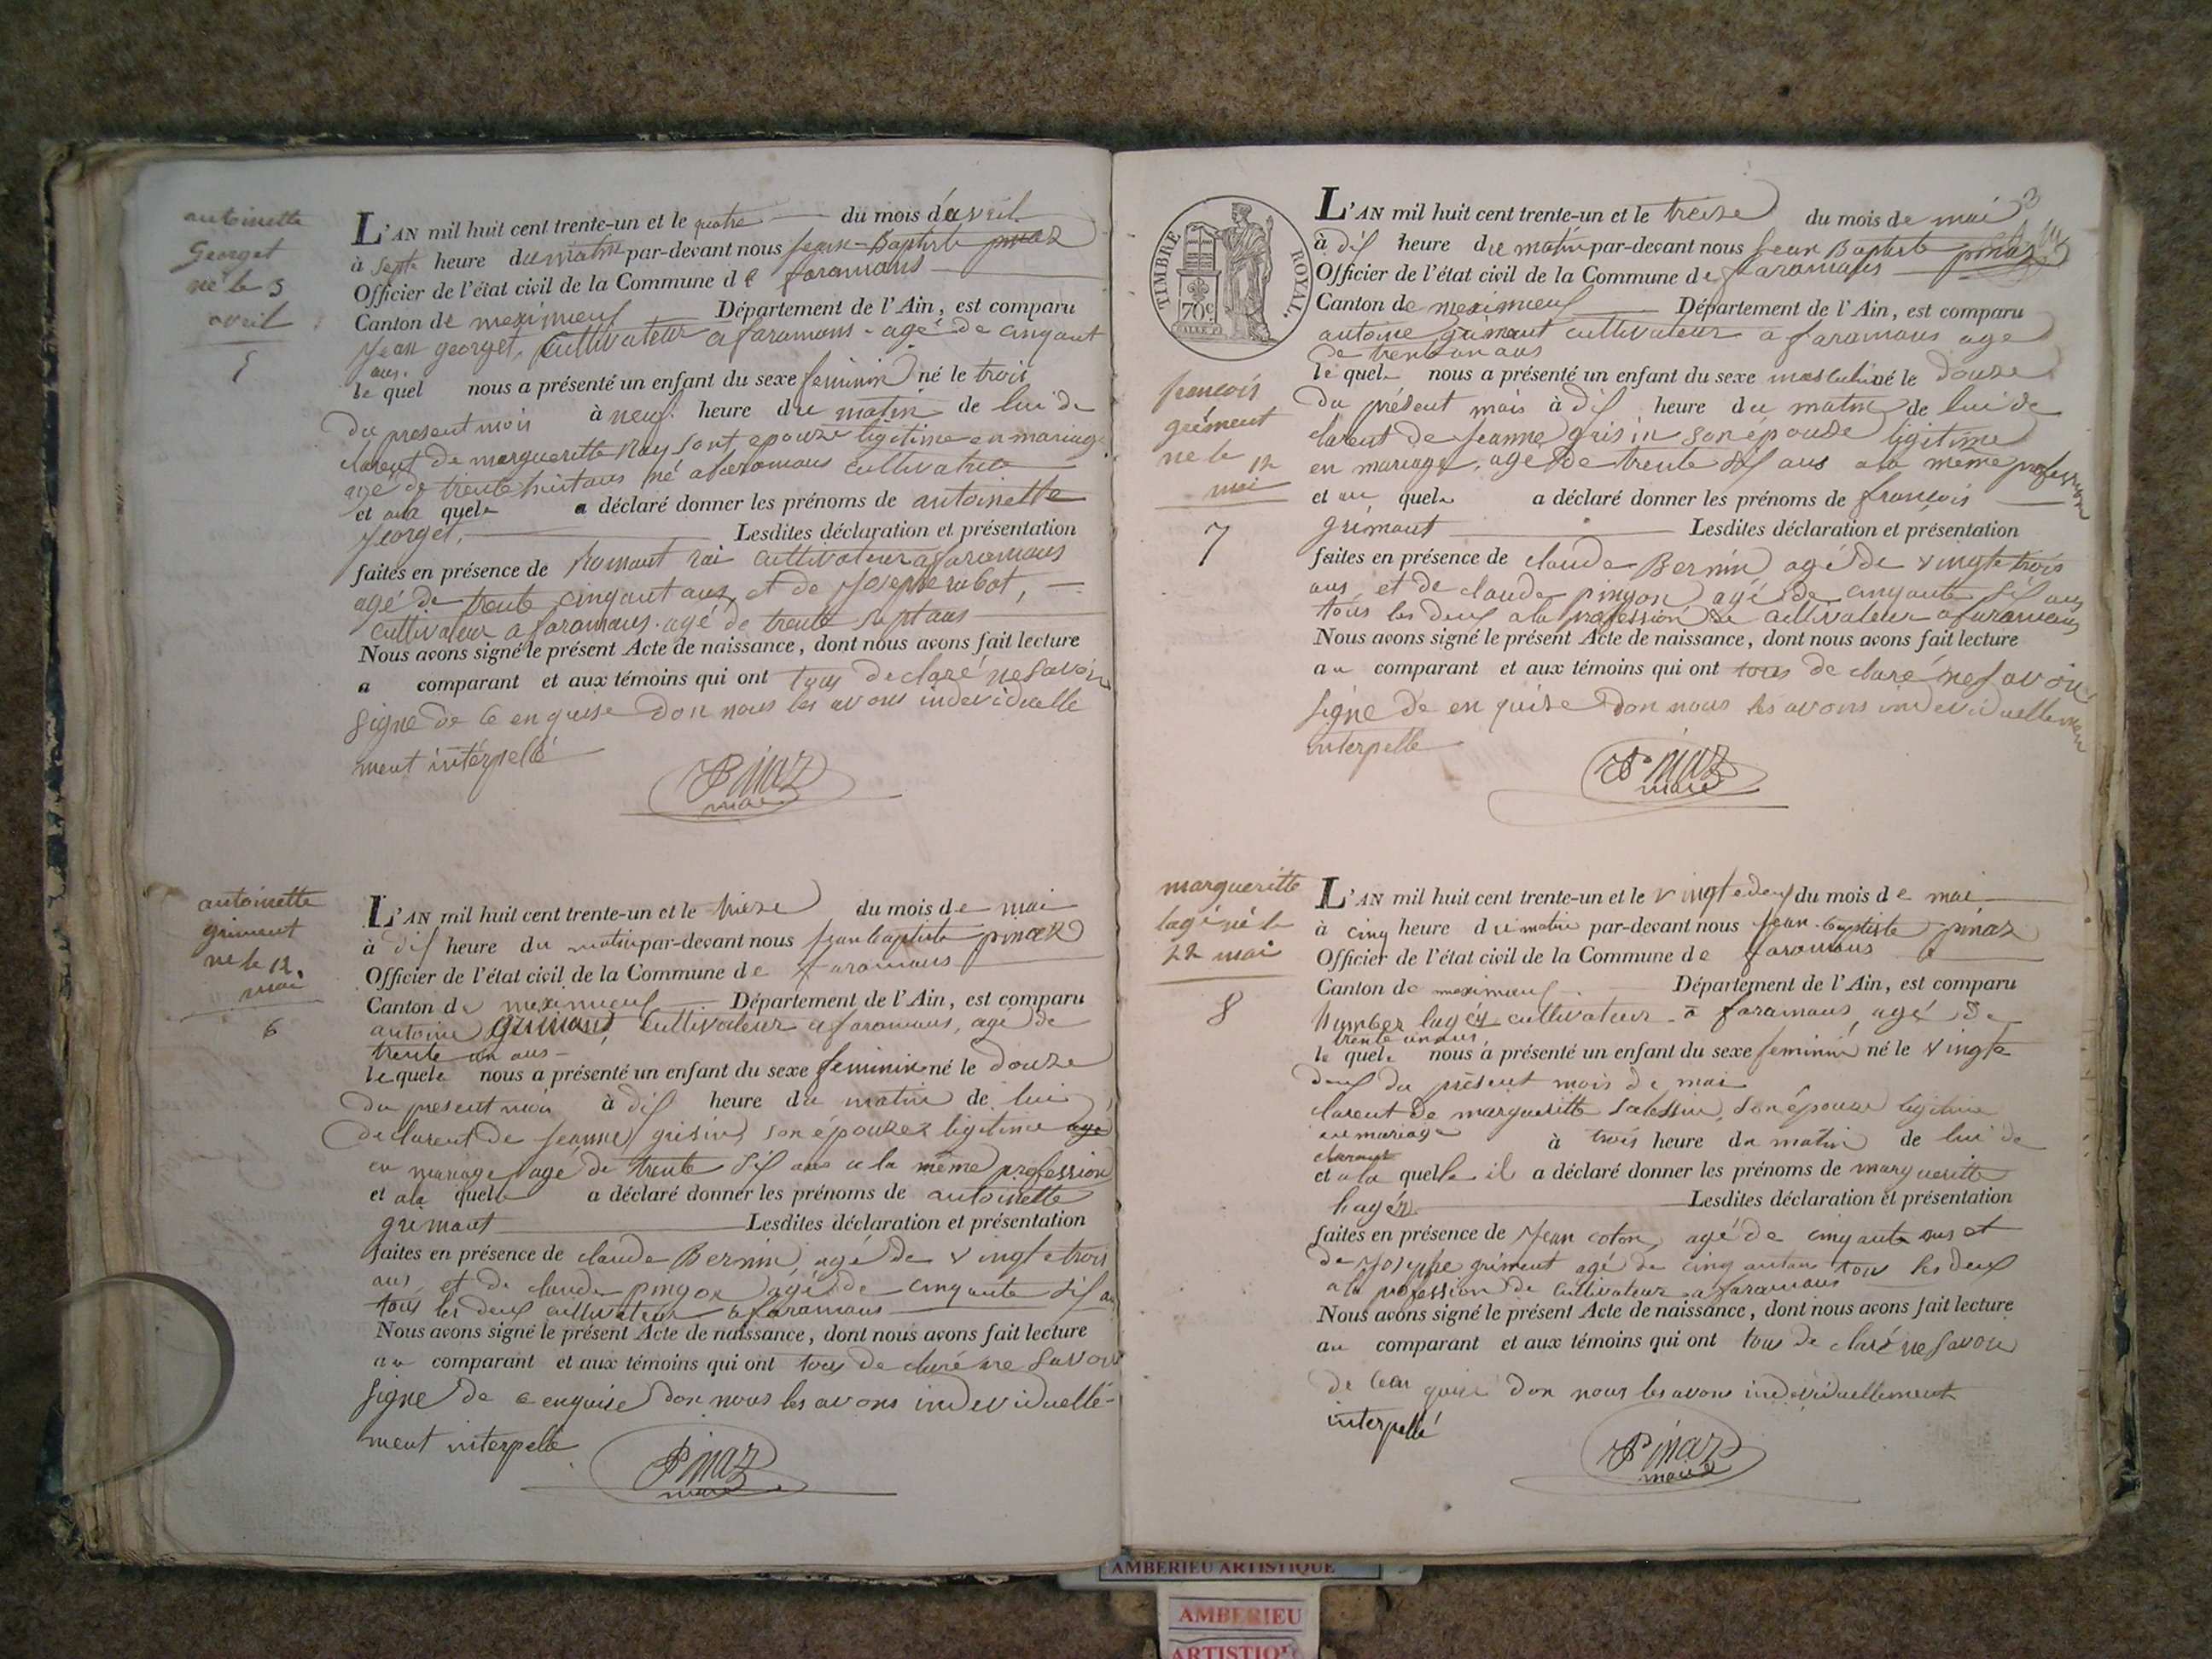 antoinette
Georget
né le 3
avril
5
L'AN mil huit cent trente-un et le quatre du mois d'avril
à Septe heure du matin par-devant nous Jean-Baptiste pinaz
Officier de l'état civil de la Commune de faramans
Canton de meximeux Département de l'Ain, est comparu
Jean georget, Cultivateur a faramans agé de cinquant
ans.
le quel nous a présenté un enfant du sexe feminin né le trois
du present mois à neuf heure du matin de lui de
clarent de margueritte Ray sont epouze ligitime en mariage
agé de trente huit ans né a faramans cultivatrice
et a la quele a déclaré donner les prénoms de antoinette
georget, Lesdites déclaration et présentation
faites en présence de Romant rai cultivateur a faramans
agé de trente cinquant ans, et de Josephe rabot,
cultivateur a faramans agé de trente Sept ans
Nous avons signé le présent Acte de naissance, dont nous avons fait lecture
a comparant et aux témoins qui ont tous declaré ne savoir
signe de ce enquise Don nous les avons individuelle
ment intérpellé
Pinaz
maire
antoinette
griment
né le 12.
mai
6
L'AN mil huit cent trente-un et le treize du mois de mai
à dix heure du matin par-devant nous Jean baptiste pinaz
Officier de l'état civil de la Commune de faramans
Canton de meximeux Département de l'Ain, est comparu
antoine grimant, Cultivateur a faramans, agé de
trente un ans
le quele nous a présenté un enfant du sexe feminin né le douze
du present mois à dix heure du matin de lui
declarent de Jeanne grisin, son épouze ligitime agé
en mariage agé de trente six ans a la même profession
et a la quele a déclaré donner les prénoms de antoinette
grimant Lesdites déclaration et présentation
faites en présence de claude Bernin agé de vingte trois
ans, et de claude pingon agé de cinquante six ans
tous les deux cultivateur a faramans
Nous avons signé le présent Acte de naissance, dont nous avons fait lecture
au comparant et aux témoins qui ont tous de claré ne savoir
signe de ce enquise don nous les avons individuelle-
ment interpelé
Pinaz
maire
3
TIMBRE ROYAL.
70c.
L'AN mil huit cent trente-un et le treize du mois de mai
à dix heure du matin par-devant nous Jean Baptiste pinaz
Officier de l'état civil de la Commune de faramans
Canton de meximeux Département de l'Ain, est comparu
antoine grimant cultivateur a faramans age
de trente un ans
le quel nous a présenté un enfant du sexe masculin né le douze
du présent mois à dix heure du matin de lui de
clarent de Jeanne grisin son épouse ligitime
en mariage, age de trente six ans a la même profession
et au quele a déclaré donner les prénoms de françois
grimant Lesdites déclaration et présentation
faites en présence de claude Bernin agé de vingte trois
ans et de claude pingon agé de cinquante six ans
tous les deux a la profession de cultivateur a faramans
Nous avons signé le présent Acte de naissance, dont nous avons fait lecture
au comparant et aux témoins qui ont tous de claré ne savoir
signe de en quise don nous les avons individuellemen
interpelle
Pinaz
maire
françois
griment
né le 12
mai
7
margueritte
lagé né le
22 mai
8
L'AN mil huit cent trente-un et le vingte deux du mois de mai
à cinq heure du matin par-devant nous Jean-baptiste pinaz
Officier de l'état civil de la Commune de faramans
Canton de meximeux Département de l'Ain, est comparu
cultivateur a faramans, agé de
trente un ans
le quele nous a présenté un enfant du sexe feminin né le vingte
deux du présent mois de mai
clarent de margueritte son épouze ligitime
en mariage à trois heure du matin de lui de
clarant
et a la quelle il a déclaré donner les prénoms de margueritte
Lesdites déclaration et présentation
faites en présence de Jean coton, agé de cinquante ans et
de Josephe griment agé de cinquantans tous les deux
a la profession de Cultivateur a faramans
Nous avons signé le présent Acte de naissance, dont nous avons fait lecture
au comparant et aux témoins qui ont tous de claré ne savoir
de quise don nous les avons individuellement
interpellé
Pinaz
maire
AMBERIEU ARTISTIQUE
AMBERIEU
ARTISTIQUE